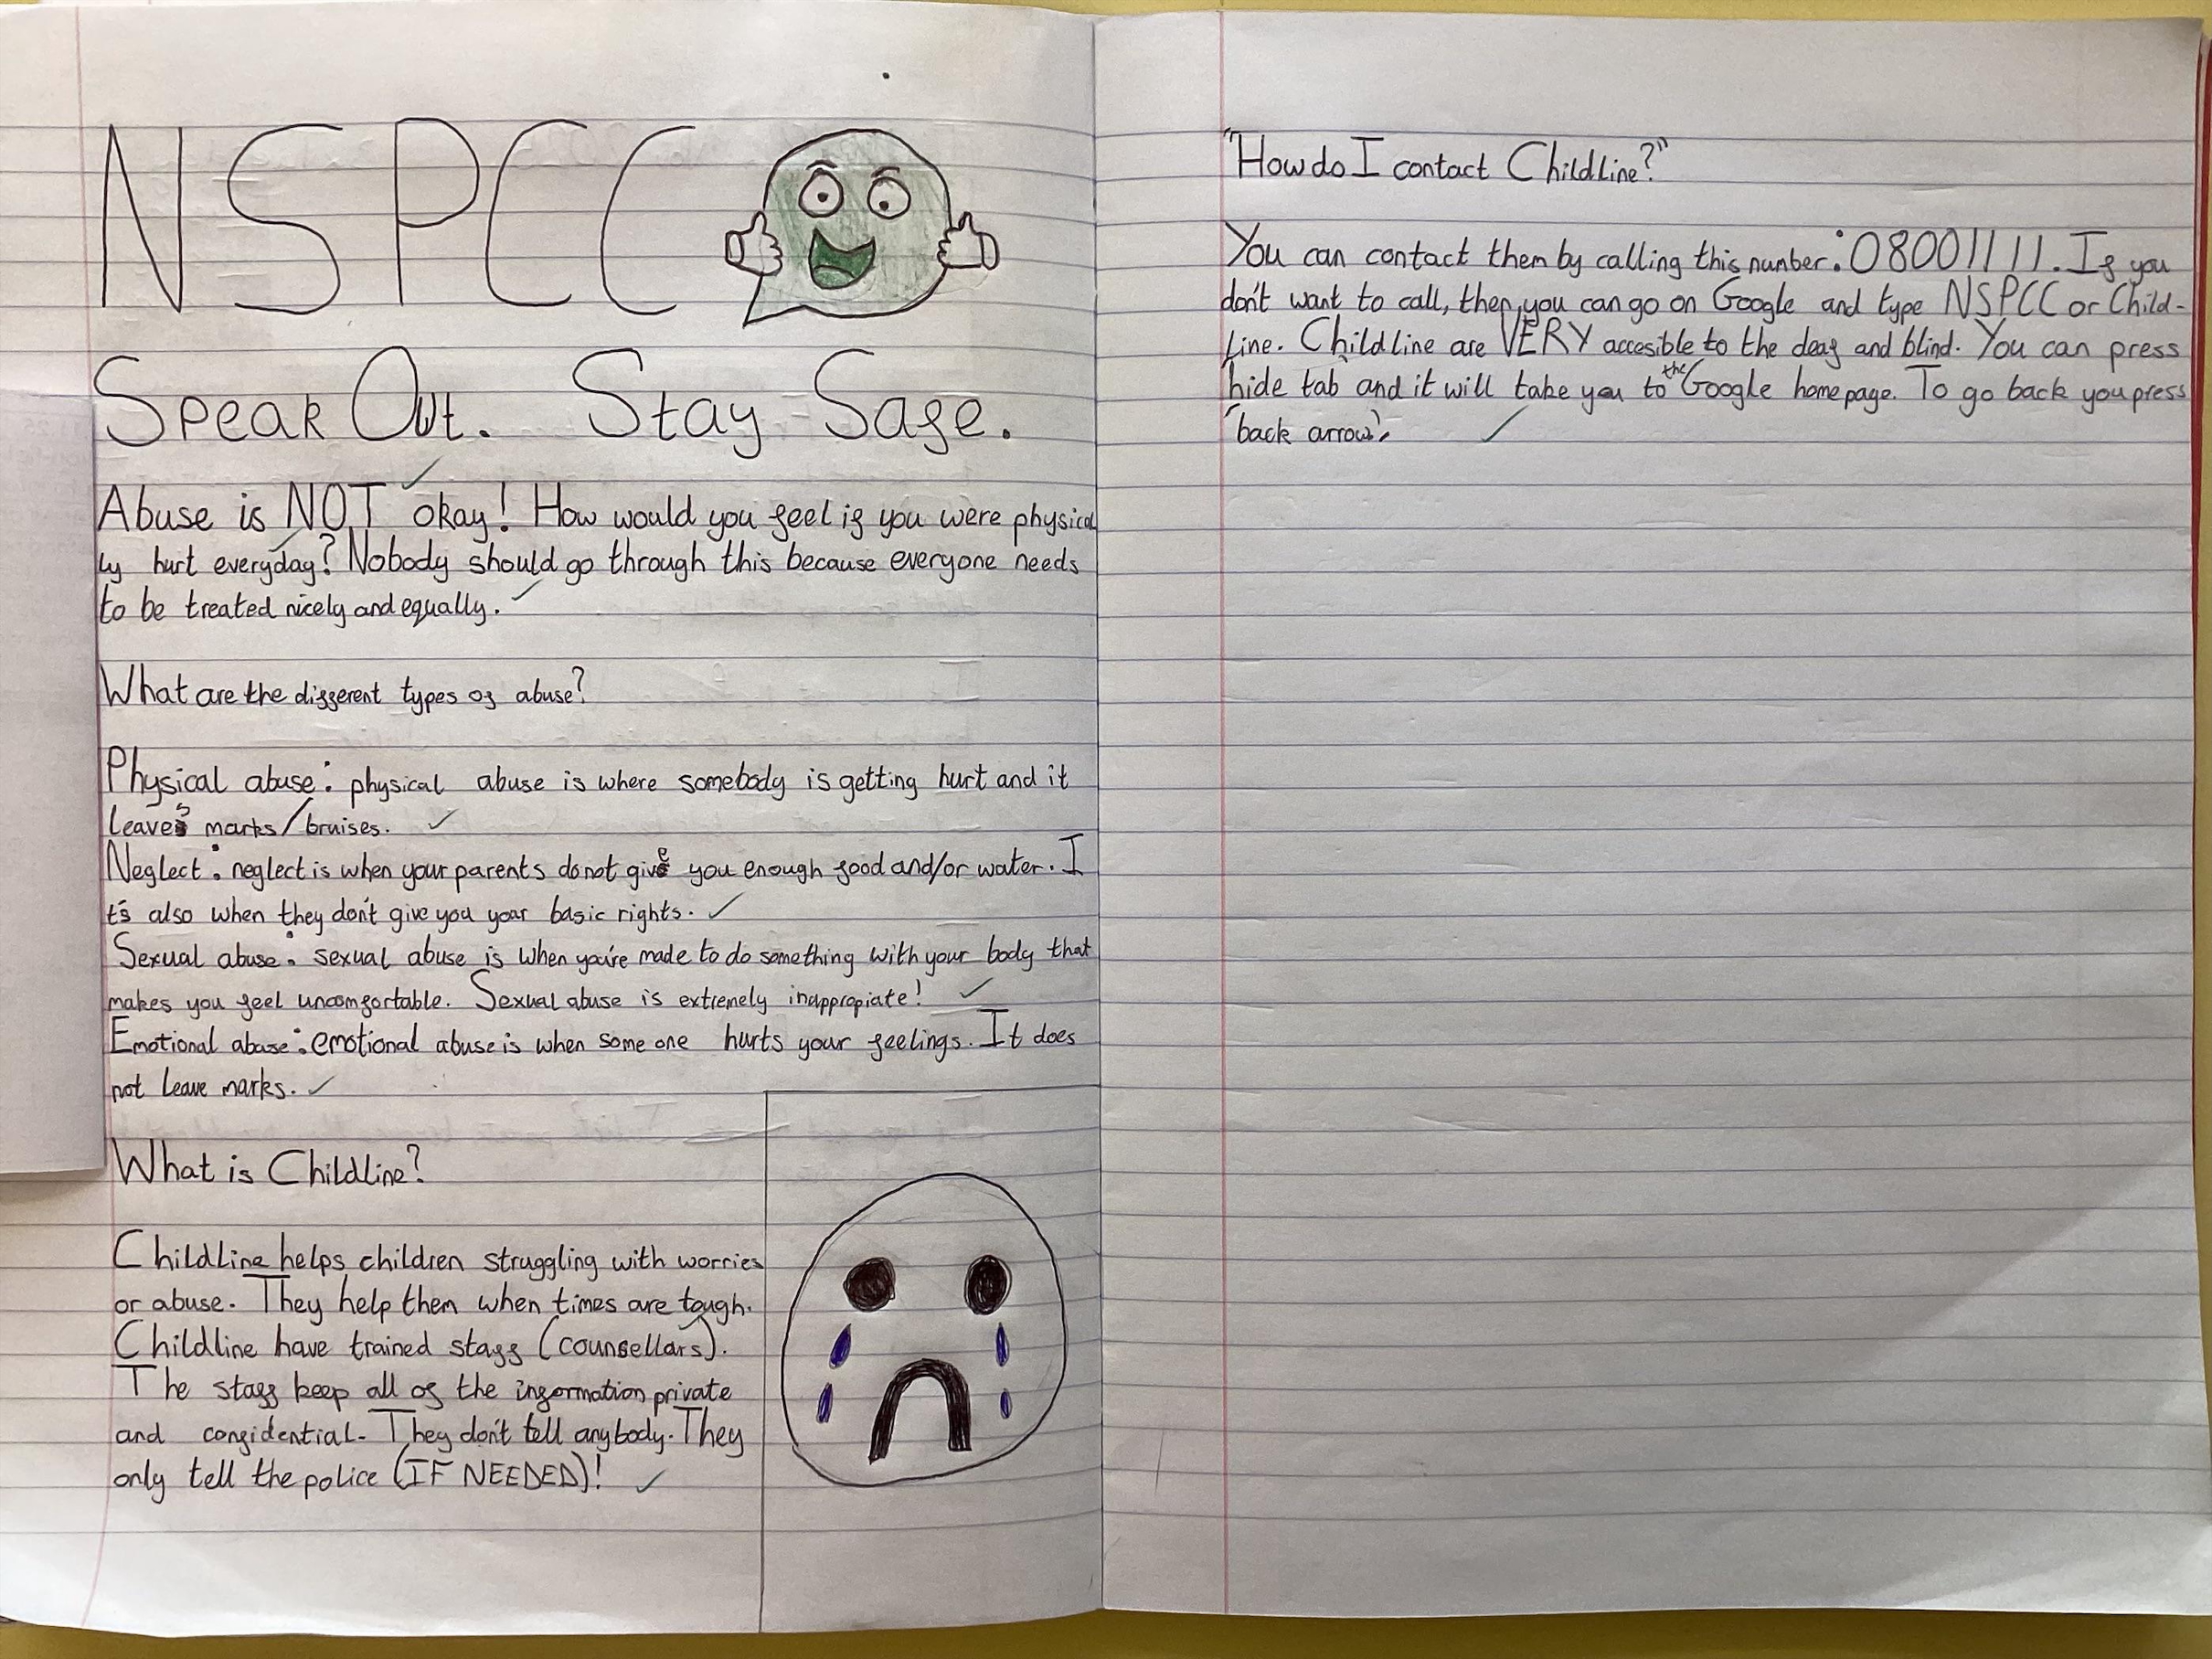 NSPCC
Speak Out. Stay Safe.
Abuse is NOT okay! How would you feel if you were physical
ly hurt everyday? Nobody should go through this because everyone needs
to be treated nicely and equally.
What are the different types of abuse?
Physical abuse: physical abuse is where somebody is getting hurt and it
leaves marks/bruises.
Neglect: neglect is when your parents do not give you enough food and/or water. I
t's also when they don't give you your basic rights.
Sexual abuse: sexual abuse is when you're made to do something with your body that
makes you feel uncomfortable. Sexual abuse is extremely inappropiate!
Emotional abuse: emotional abuse is when some one hurts your feelings. It does
not leave marks.
What is Childline?
Childline helps children struggling with worries
or abuse. They help them when times are tough.
Childline have trained staff (counsellars).
The staff keep all of the information private
and confidential. They don't tell anybody. They
only tell the police (IF NEEDED)!
"How do I contact Childline?"
You can contact them by calling this number: 08001111. If you
don't want to call, then you can go on Google and type NSPCC or Child-
line. Childline are VERY accesible to the deaf and blind. You can press
hide tab and it will take you to the Google home page. To go back you press
'back arrow'.